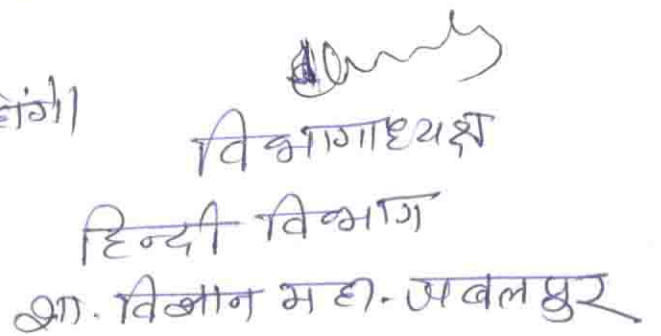 होंगे।
विभागाध्यक्ष
हिन्दी विभाग
शा. विज्ञान महा. जबलपुर